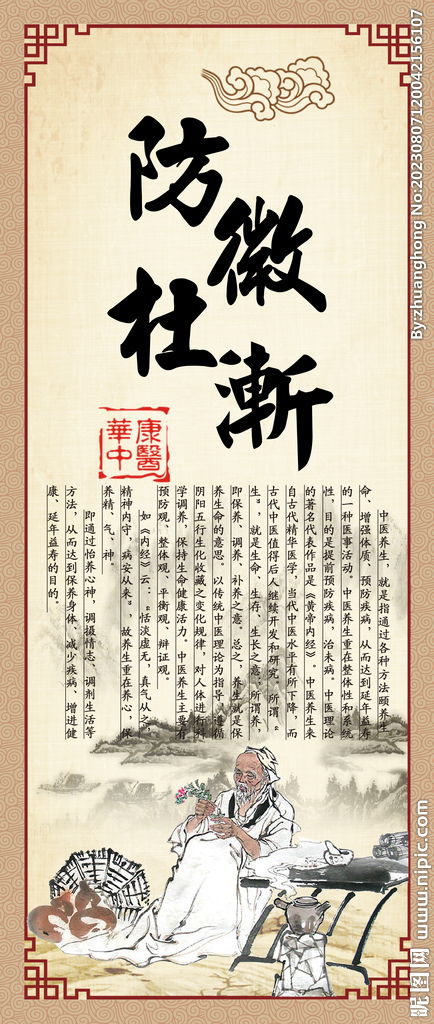 防微杜漸
中医养生，就是指通过各种方法颐养生
命、增强体质、预防疾病，从而达到延年益寿
的一种医事活动。中医养生重在整体性和系统
性，目的是提前预防疾病，治未病。中医理论
的著名代表作品是《黄帝内经》。中医养生来
自古代精华医学，当代中医水平有所下降，而
古代中医值得后人继续开发和研究。所谓“
生”，就是生命、生存、生长之意；所谓养，
即保养、调养、补养之意。总之，养生就是保
养生命的意思。以传统中医理论为指导，遵循
阴阳五行生化收藏之变化规律，对人体进行科
学调养，保持生命健康活力。中医养生主要有
预防观，整体观，平衡观，辩证观。
如《内经》云：“恬淡虚无，真气从之，
精神内守，病安从来”，故养生重在养心，保
养精、气、神。
即通过怡养心神，调摄情志、调剂生活等
方法，从而达到保养身体、减少疾病、增进健
康、延年益寿的目的。
康醫
華中
By:zhuanghong No:20230807120042156107
昵图网 www.nipic.com